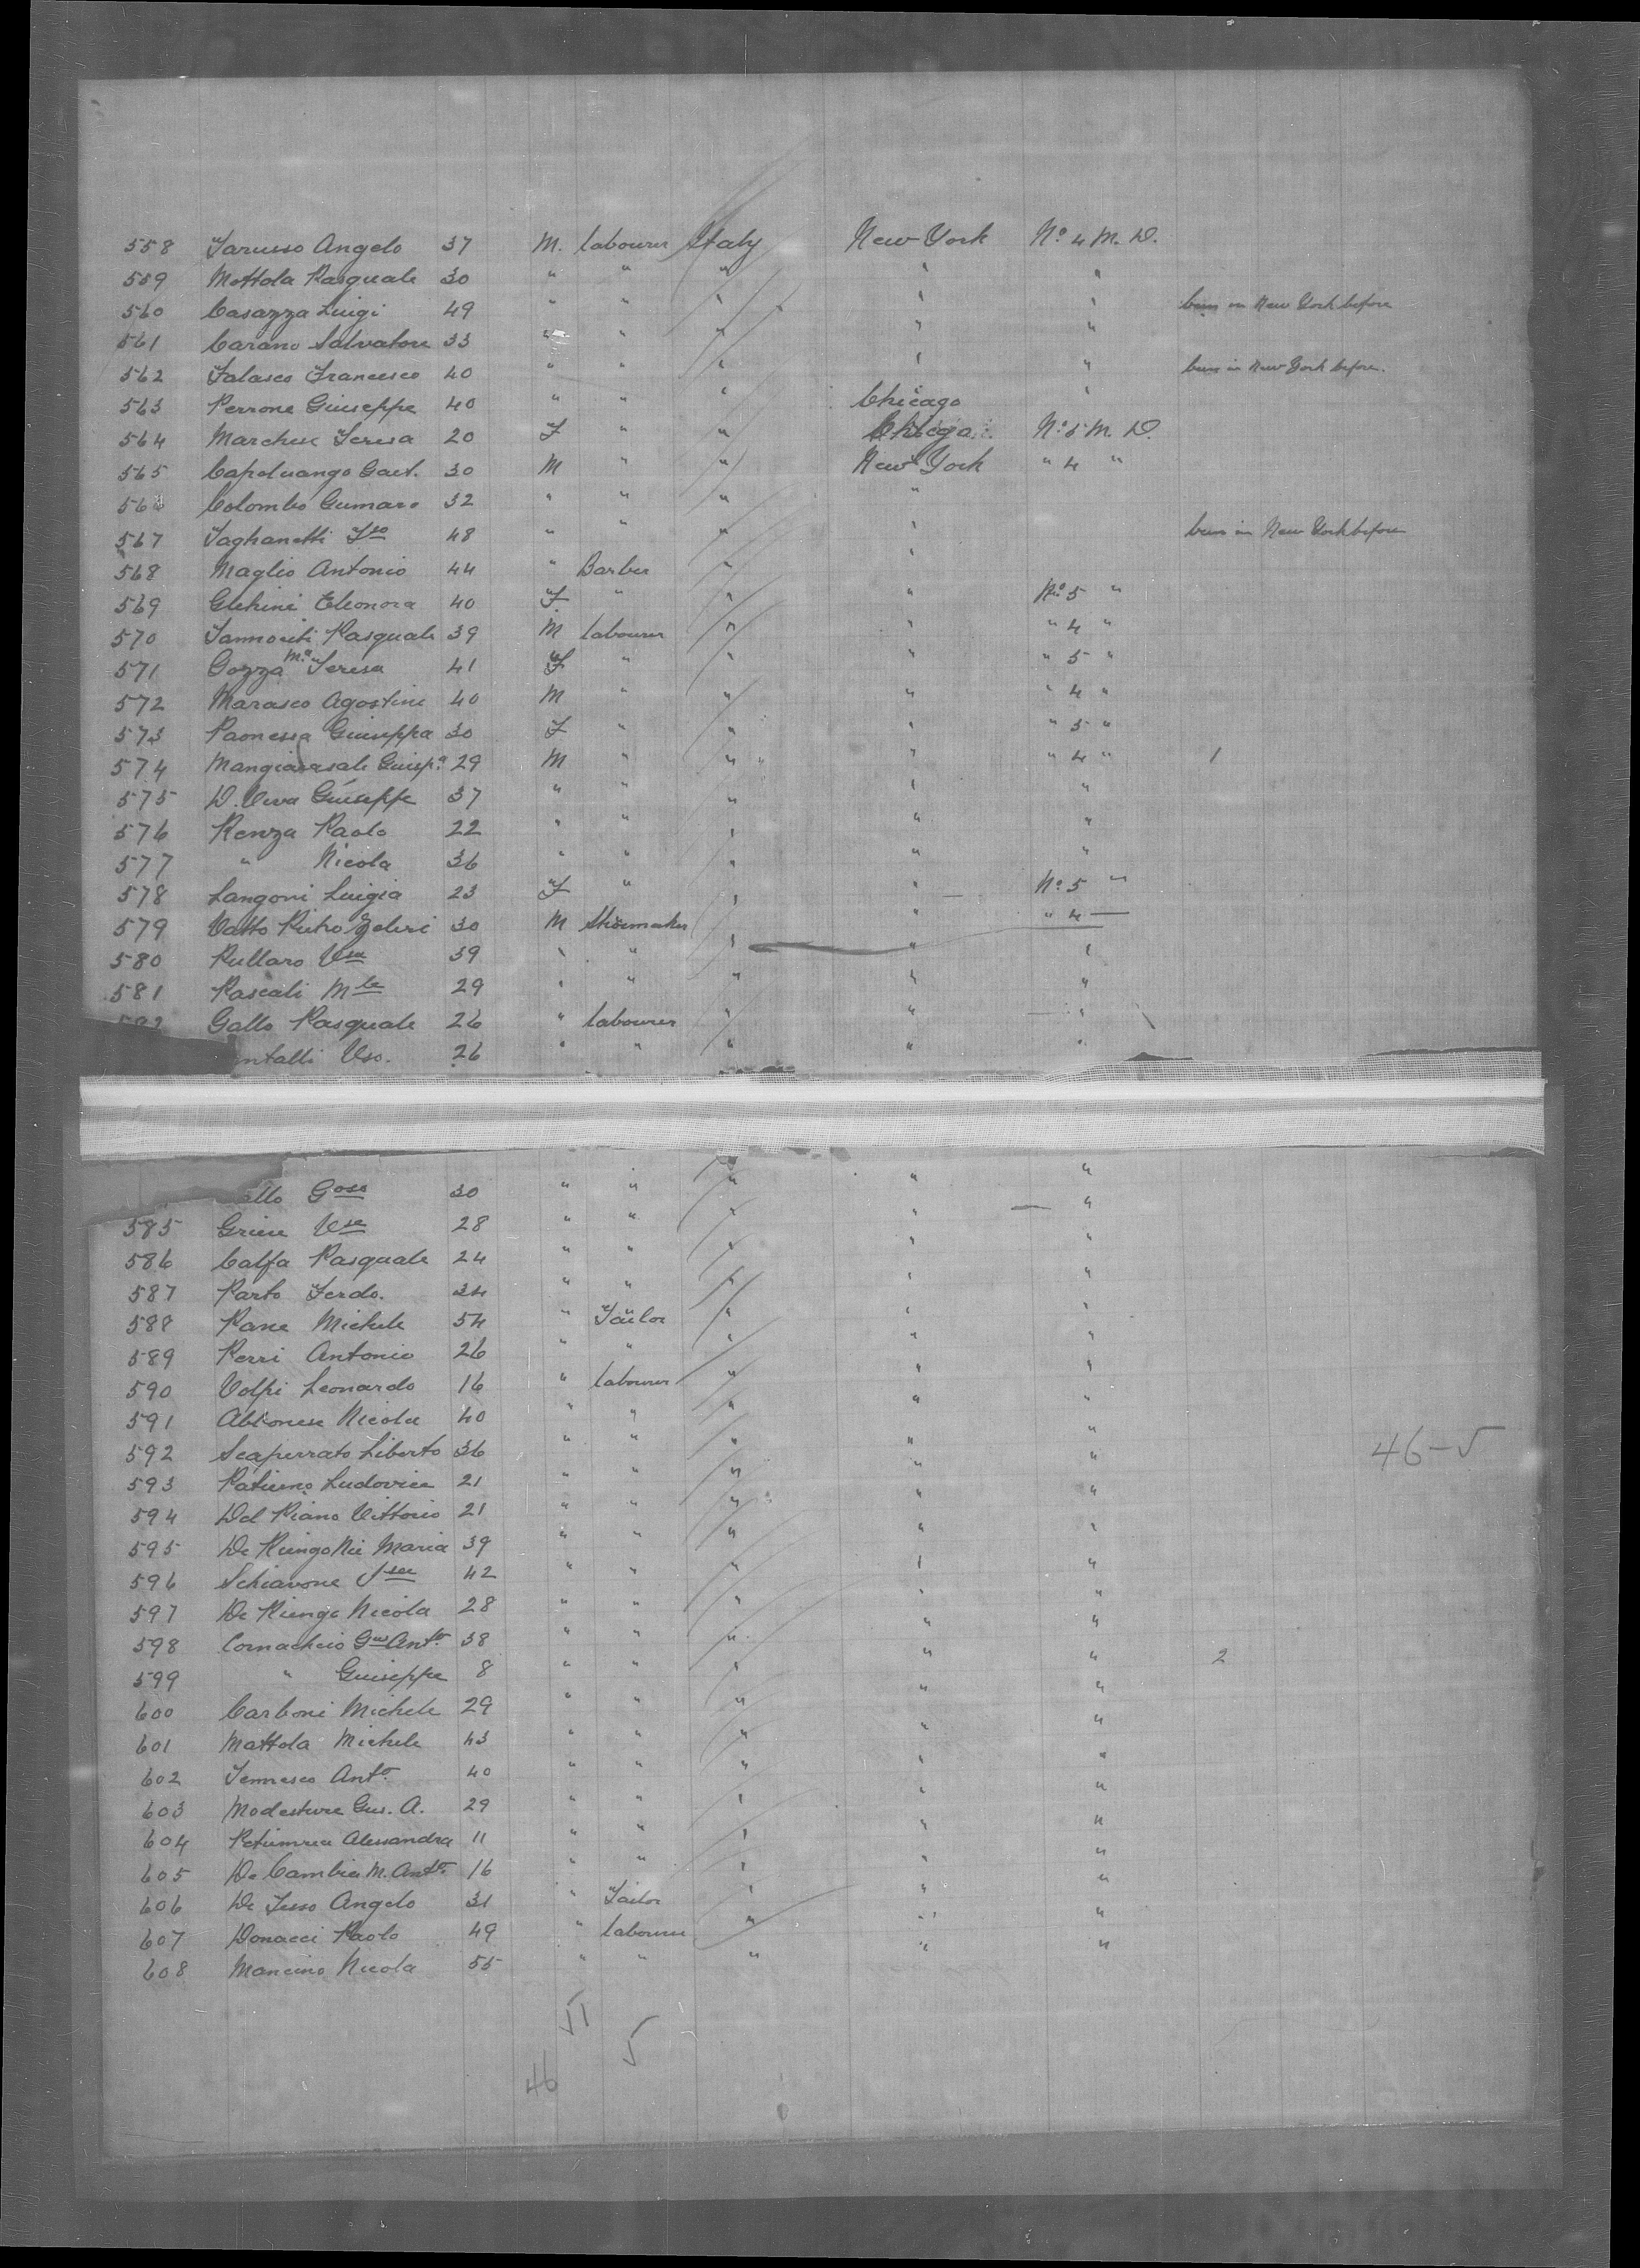 558 Iarusso Angelo 37 M. labourer Italy New York No 4 M. D.
559 Mottola Pasquale 30 " " " " "
560 Casazza Luigi 49 " " " " " been in New York before
561 Carano Salvatore 33 " " " " "
562 Falasco Francesco 40 " " " " " been in New York before.
563 Perrone Giuseppe 40 " " " Chicago "
564 Marchese Teresa 20 F " " No 5 M. D.
565 Gaet. 30 M " " New York " 4 "
Colombo 32 " " " "
567 48 " " " " been in New York before
568 Maglio Antonio 44 " Barber " "
569 Eleonora 40 F " " " No 5 "
570 Pasquale 39 M labourer " " " 4 "
571 Gozza Ma Teresa 41 F " " " " 5 "
572 Marasco Agostino 40 M " " " " 4 "
573 Paonessa Giuseppa 30 F " " " " 5 "
574 29 M " " " " 4 " 1
575 Giuseppe 37 " " " " "
576 Renza Paolo 22 " " " " "
577 " Nicola 36 " " " " "
578 Langoni Luigia 23 F " " " No 5 "
579 Pietro 30 M Shoemaker " " " 4
580 Pullaro 39 " " " " "
581 Pascali Mle 29 " " " " "
Gallo Pasquale 26 " labourer " " "
ntalli Vso. 26 " " " " "
allo Goso 30 " " " " "
585 28 " " " " "
586 Calfa Pasquale 24 " " " " "
587 Parto Ferdo. 34 " " " " "
588 Pane Michele 54 " Tailor " " "
589 Perri Antonio 26 " " " " "
590 Volpi Leonardo 16 " labourer " " "
591 Nicola 40 " " " " "
592 Liberto 36 " " " " " 46-5
593 21 " " " " "
594 Del Piano Vittorio 21 " " " " "
595 De Maria 39 " " " " "
596 Schiavone 42 " " " " "
597 De Nicola 28 " " " " "
598 Anto 38 " " " " "
599 " Giuseppe 8 " " " " " 2
600 Carboni Michele 29 " " " " "
601 Mattola Michele 43 " " " " "
602 Anto 40 " " " " "
603 A. 29 " " " " "
604 Alessandra 11 " " " " "
605 De Cambia M. Anto 16 " " " " "
606 De Angelo 31 " Tailor " " "
607 Donacci Paolo 49 " labourer " " "
608 Mancino Nicola 55 " " " " "
51
5
46